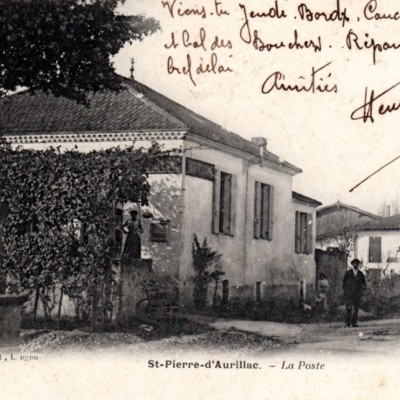 Viens-tu Jeudi. Bordx,
Al Col des Bouchers. Répon
bref délai
Amitiés
Hen
St-Pierre-d'Aurillac. - La Poste